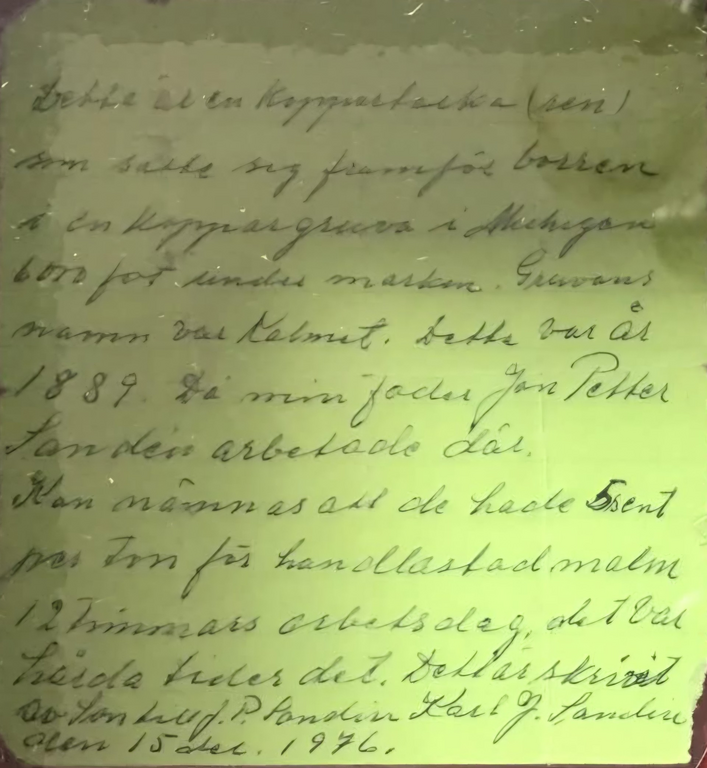 Detta är en Kopparbarka (ren)
som satte sig framför borren
i en Koppargruva i Michigan
600 fot under marken. Gruvans
namn var Kalmet. Detta var år
1889. Då min fader Jon Petter
Sandén arbetade där.
Kan nämnas att de hade 5sent
per ton för handlastad malm
12 timmars arbetsdag, det var
hårda tider det. Detta är skrivet
av Son till J. P. Sandin Karl J. Sandin
den 15 dec. 1976.